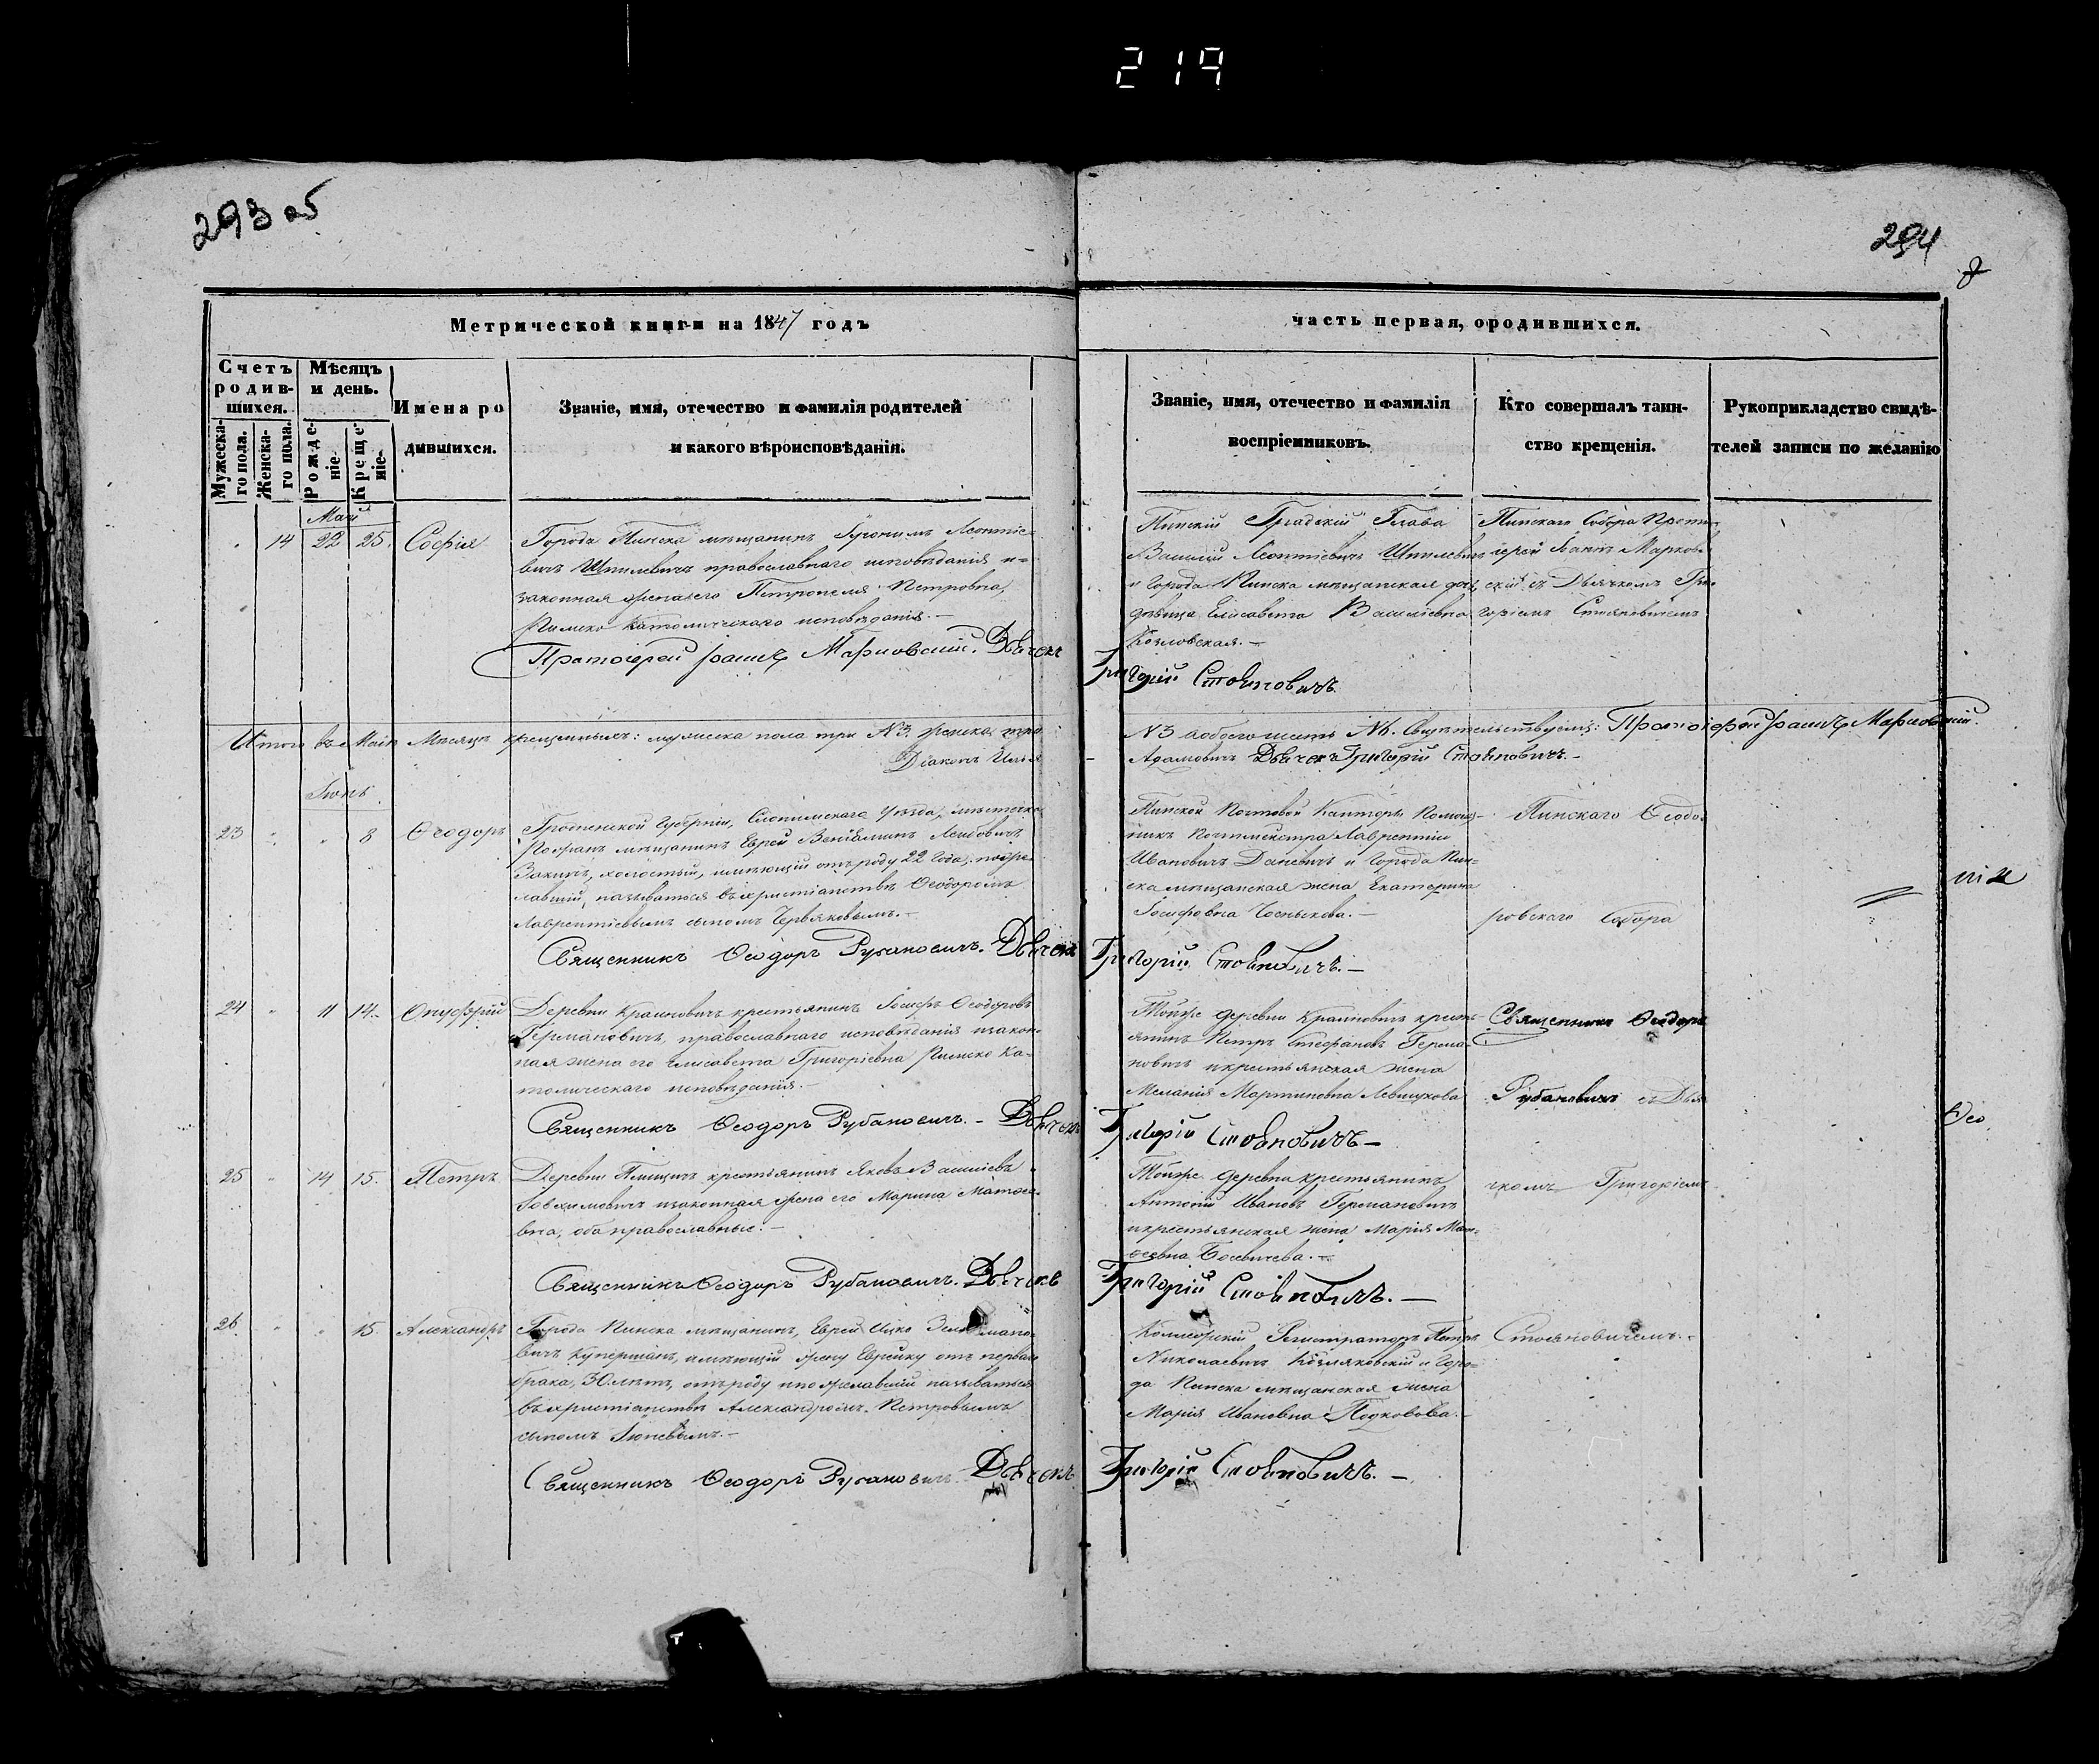 219
293 об
294
Метрической книги на 1847 годъ
часть первая, ородившихся.
Счетъ родив-
шихся.
Мужеска-
го пола.
Женска-
го пола.
Мѣсяцъ
и день.
Рожде-
ніе.
Креще-
ніе.
Имена ро
дившихся.
Званіе, имя, отечество и фамилія родителей
и какого вѣроисповѣданія.
Званіе, имя, отечество и фамилія
воспріемниковъ.
Кто совершалъ таин-
ство крещенія.
Рукоприкладство свидѣ-
телей записи по желанію
Май
14 22 25. Софія
Города Пинска мѣщанинъ Іеронимъ Леонтіе-
вичъ Шпилевичъ православнаго исповѣданія и-
законная жена его Петронеля Петровна,
Римско Католическаго исповѣданія.-
Протоіерей Іоаннъ Марковскій. Дьячекъ
Пинскій Градскій Глава
Василій Леонтіевичъ Шпилевичъ
и города Пинска мѣщанская дочь
дѣвица Елисавета Васильевна
Козловская.-
Григорій Стояновичъ
Пинскаго Собора Прото-
іерей Іоаннъ Марков-
скій съ Дьячкомъ Гри-
горіемъ Стояновичемъ
Итого въ Маѣ Мѣсяцѣ крещенныхъ: мужеска пола три №3, женска три
Діаконъ Илія
№3 а обоего шесть №6. Свидѣтельствуемъ: Протоіерей Іоаннъ Марковскій.
Адамовичъ Дьячекъ Григорій Стояновичъ.-
Іюнь
23 8 Ѳеодоръ
Гродненской Губерніи, Слонимскаго Уѣзда, мѣстечка
мѣщанинъ Еврей Веніаминъ Лейбовичъ
Закинъ, холостый, имѣющій отъ роду 22 года, поже-
лавшій, называться въ христіанствѣ Ѳеодоромъ
Лаврентіевымъ сыномъ Червяковымъ.-
Священникъ Ѳеодоръ Рубановичъ. Дьячекъ
Пинской Почтовой Канторы Помощ-
никъ Почтмейстра Лаврентій
Ивановичъ Даневичъ и города Пин-
ска мѣщанская жена Екатерина
Іосифовна
Григорій Стояновичъ.-
Пинскаго Ѳеодо-
ровскаго Собора
24 11 14. Онуфрій
Деревни Крайновичъ крестьянинъ Іосифъ Ѳеодоровъ
Германовичъ, православнаго исповѣданія изакон-
ная жена его Елисавета Григоріевна Римско Ка-
толическаго исповѣданія.-
Священникъ Ѳеодоръ Рубановичъ.- Дьячекъ
Тойже деревни Крайновичъ кресть-
янинъ Петръ Стефановъ Герма-
новичъ икрестьянская жена
Меланія Мартиновна Левшукова
Григорій Стояновичъ-
Священникъ Ѳеодоръ
Рубановичъ съ Дья-
25 14 15. Петръ
Деревни крестьянинъ Яковъ Васильевъ
Іовхимовичъ изаконная жена его Марина Матѳее-
вна, оба православные.-
Священникъ Ѳеодоръ Рубановичъ. Дьячекъ
Тойже деревни крестьянинъ
Антоній Ивановъ Германовичъ
икрестьянская жена Марія Мат-
ѳеевна
Григорій Стояновичъ.-
чкомъ Григоріемъ
26 15 Александръ
Города Пинска мѣщанинъ, Еврей Ицко
вичъ Куперманъ, имѣющій жену Еврейку отъ перваго
брака, 30 лѣтъ, отъ роду ипожелавшій называться
въ христіанствѣ Александромъ Петровымъ
сыномъ Іюневымъ.-
Священникъ Ѳеодоръ Рубановичъ. Дьячекъ
Регистраторъ Петръ
Николаевичъ и Горо-
да Пинска мѣщанская жена
Марія Ивановна Подковова.-
Григорій Стояновичъ.-
Стояновичемъ.-